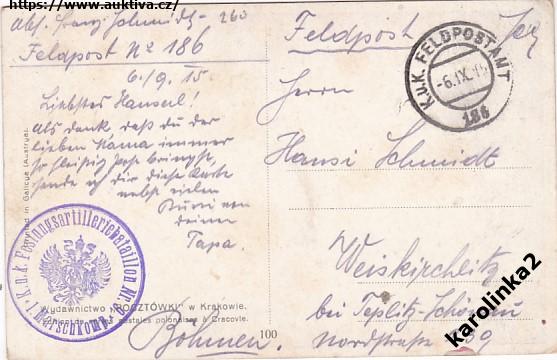 https://www.auktiva.cz/
Abs. Franz Schmidt - 260
Feldpost No 186
6./9. 15
Liebstes Hanserl!
Als Dank, daß du der
lieben Mama immer
so fleißig
sende ich dir diese Karte
nebst vielen
Bussi von
deinem
Papa.
Feldpost
K.u.K. FELDPOSTAMT
-6.IX.15
186
Herrn
Hansi Schmidt
Weiskirchlitz
bei Teplitz-Schönau
Nordstraße 239
Böhmen.
K.u.k. Festungsartilleriebataillon Nr. 9
1. Marschkomp.
Wydawnictwo "POCZTÓWKI" w Krakowie.
postales polonaises à Cracovie.
100
karolinka2